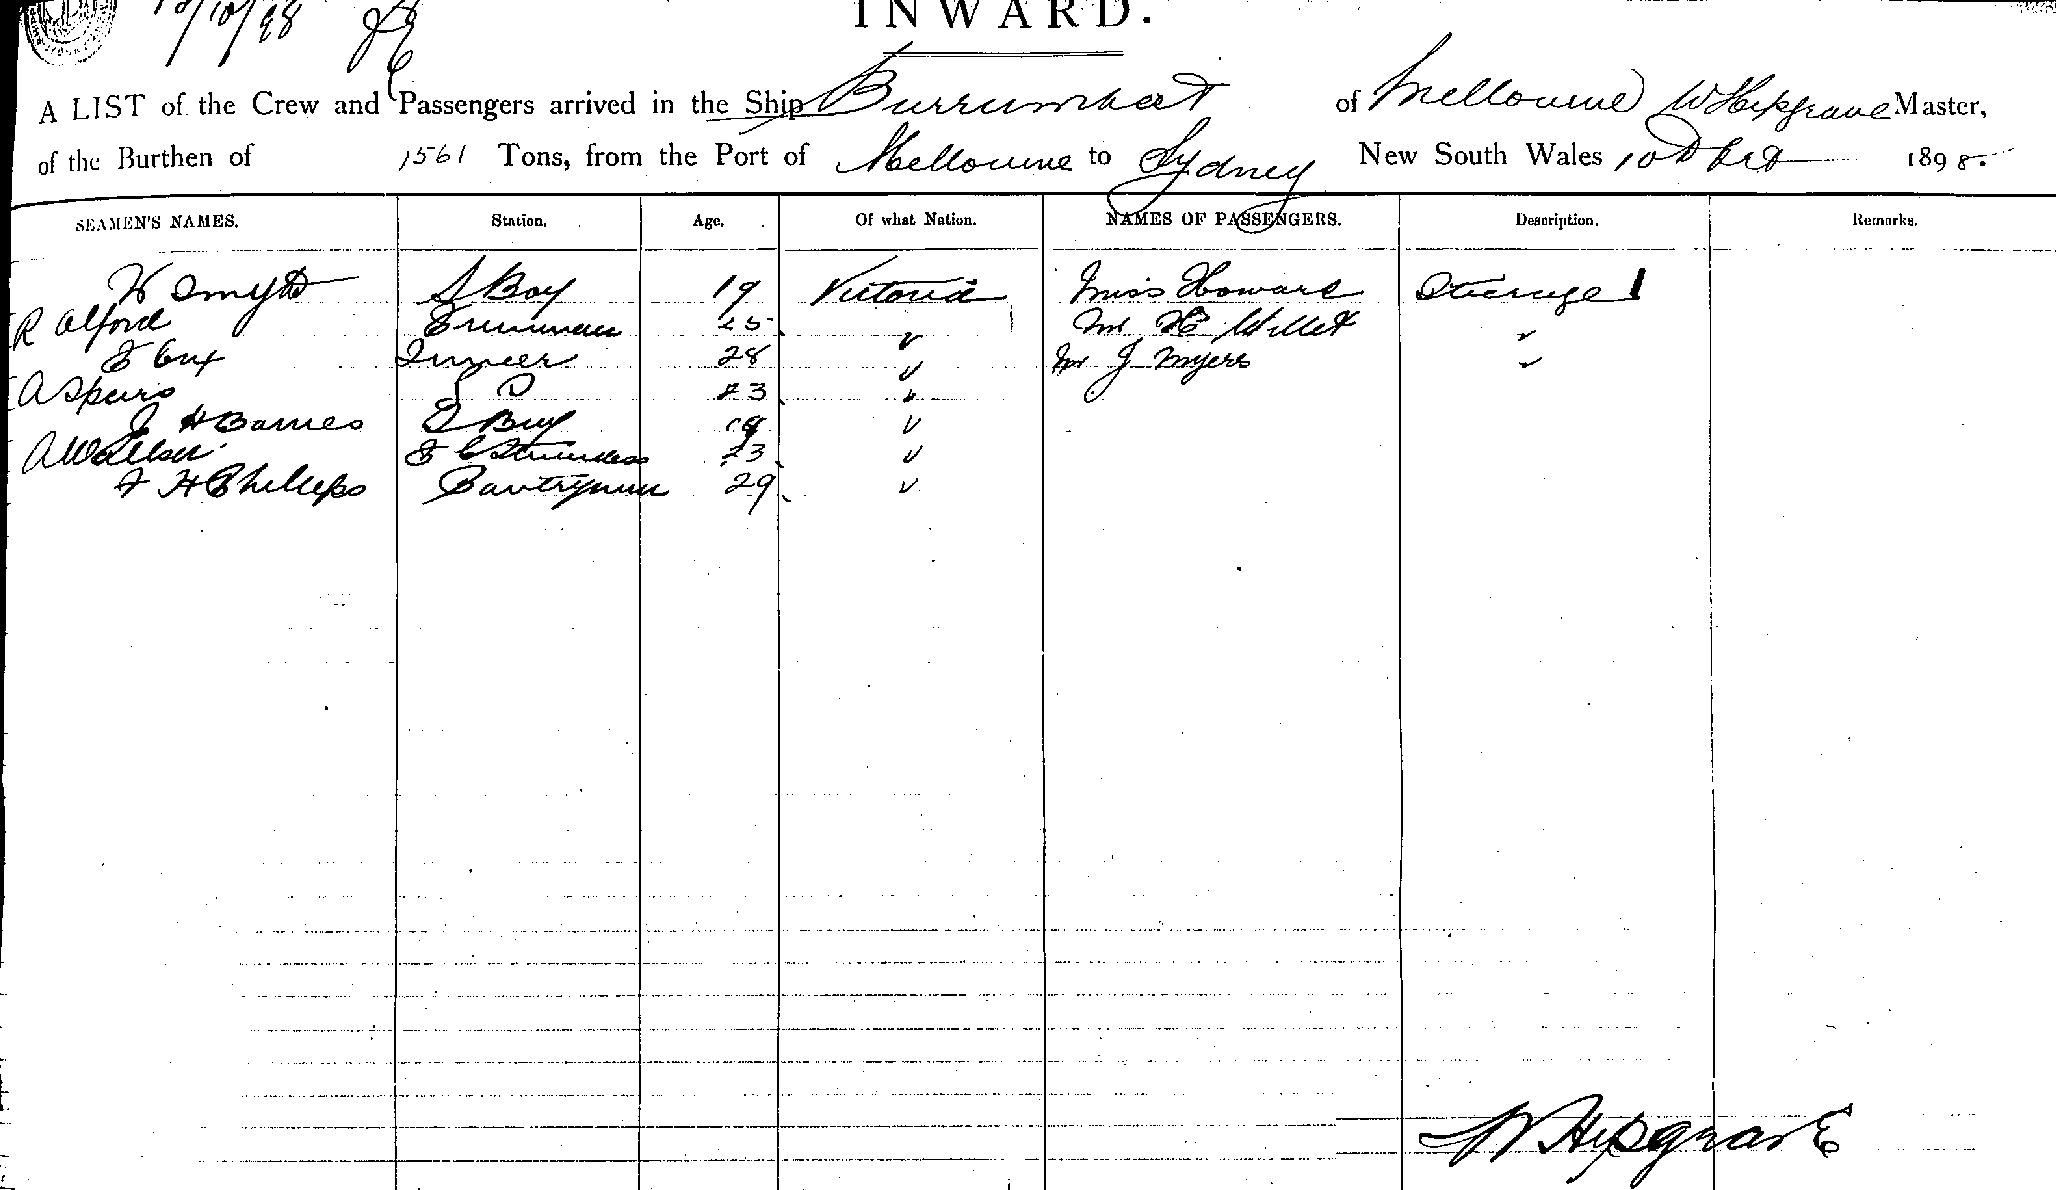 10/10/98
INWARD.
A LIST of the Crew and Passengers arrived in the Ship Burrumbeet of Melbourne W Hepgrave Master,
of the Burthen of 1561 Tons, from the Port of Melbourne to Sydney New South Wales 10th Oct 1898.
SEAMEN'S NAMES. Station. Age. Of what Nation. NAMES OF PASSENGERS. Description. Remarks.
H Smyth S Boy 19 Victoria Miss Howard Steerage
R Alford 25 " Mr H Willet "
E Guy 28 " Mr J Myers "
A Speirs 23 "
J H Barnes Boy 19 "
A Walker 23 "
F H Phillips Pantryman 29 "
W Hepgrave